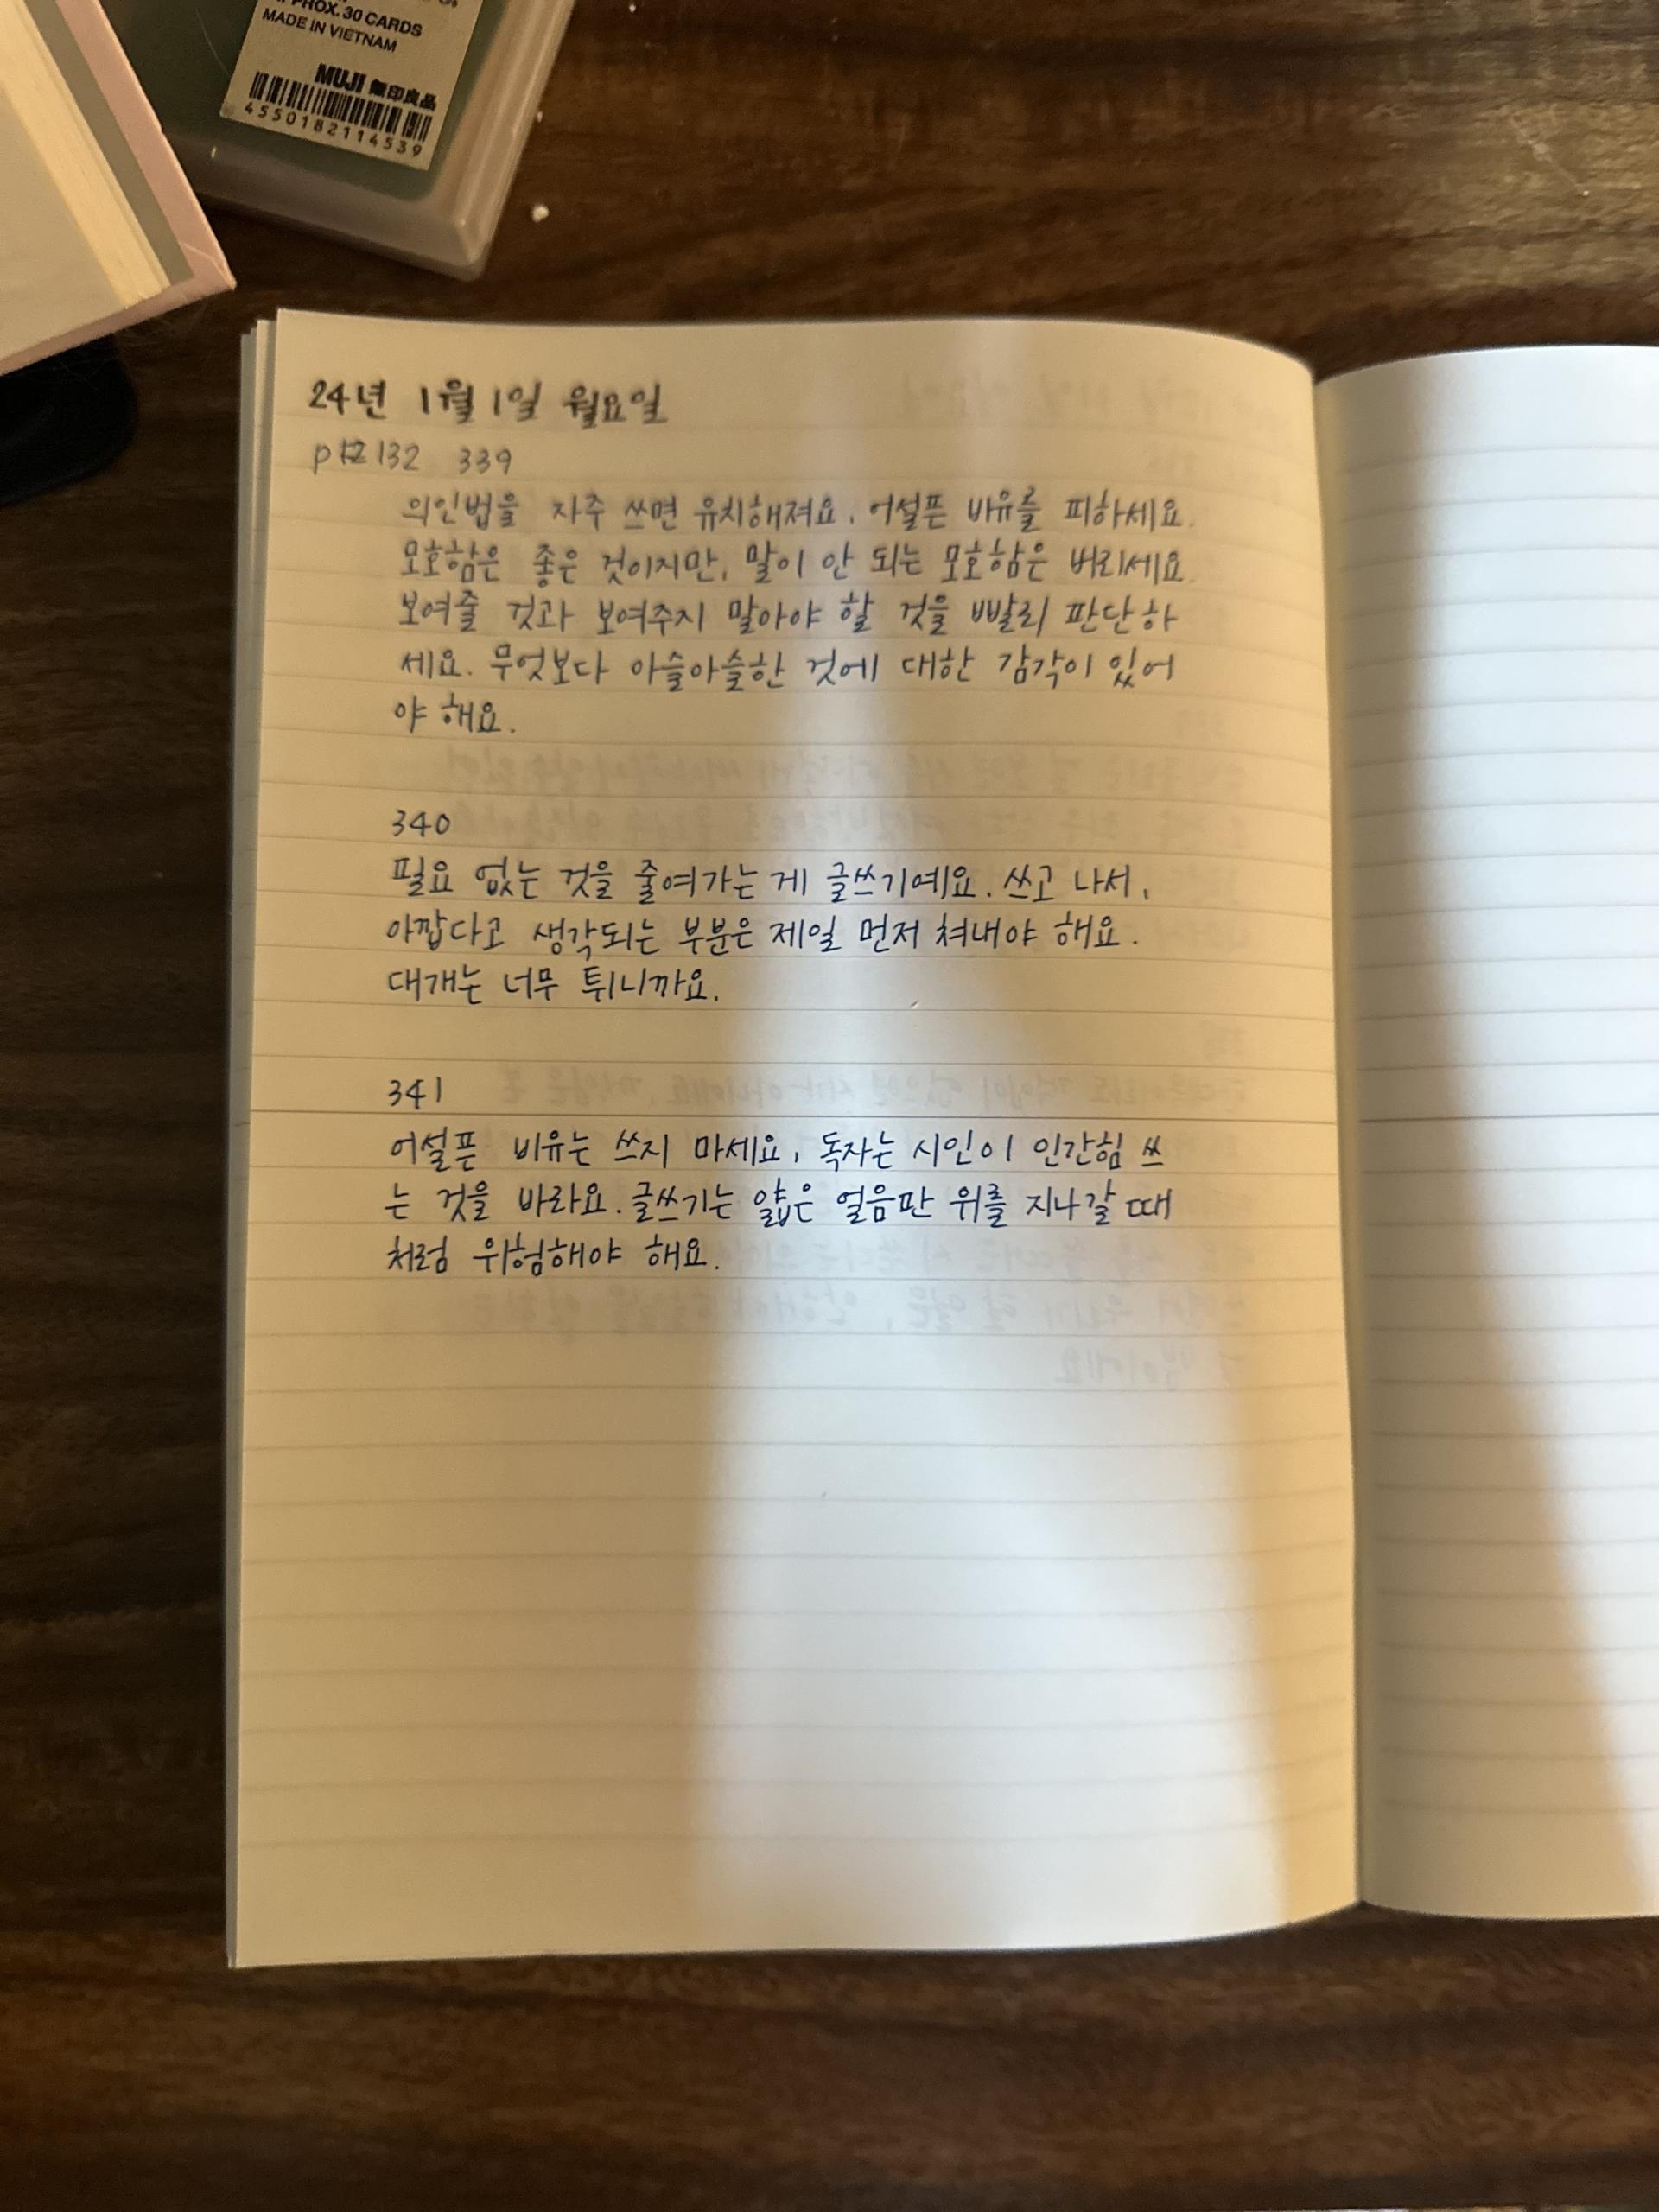 PROX. 30 CARDS
MADE IN VIETNAM
MUJI 無印良品
4550182114539
24년 1월 1일 월요일
p 132 339
의인법을 자주 쓰면 유치해져요. 어설픈 비유를 피하세요.
모호함은 좋은 것이지만, 말이 안 되는 모호함은 버리세요.
보여줄 것과 보여주지 말아야 할 것을 빨리 판단하
세요. 무엇보다 아슬아슬한 것에 대한 감각이 있어
야 해요.
340
필요 없는 것을 줄여가는 게 글쓰기예요. 쓰고 나서,
아깝다고 생각되는 부분은 제일 먼저 쳐내야 해요.
대개는 너무 튀니까요.
341
어설픈 비유는 쓰지 마세요, 독자는 시인이 인간힘 쓰
는 것을 바라요. 글쓰기는 얇은 얼음판 위를 지나갈 때
처럼 위험해야 해요.